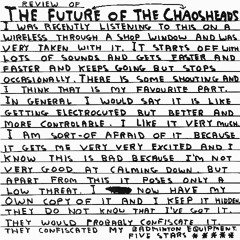 REVIEW OF
THE FUTURE OF THE CHAOSHEADS
I WAS RECENTLY LISTENING TO THIS ON A
WIRELESS THROUGH A SHOP WINDOW AND WAS
VERY TAKEN WITH IT. IT STARTS OFF WITH
LOTS OF SOUNDS AND GETS FASTER AND
FASTER AND KEEPS GOING BUT STOPS
OCCASIONALLY. THERE IS SOME SHOUTING AND
I THINK THAT IS MY FAVOURITE PART.
IN GENERAL I WOULD SAY IT IS LIKE
GETTING ELECTROCUTED BUT BETTER AND
MORE CONTROLABLE. I LIKE IT VERY MUCH.
I AM SORT-OF AFRAID OF IT BECAUSE
IT GETS ME VERY VERY EXCITED AND I
KNOW THIS IS BAD BECAUSE I'M NOT
VERY GOOD AT CALMING DOWN. BUT
APART FROM THIS IT POSES ONLY A
LOW THREAT. I NOW HAVE MY
OWN COPY OF IT AND I KEEP IT HIDDEN.
THEY DO NOT KNOW THAT I'VE GOT IT
THEY WOULD PROBABLY CONFISCATE IT.
THEY CONFISCATED MY BADMINTON EQUIPMENT.
FIVE STARS ★★★★★